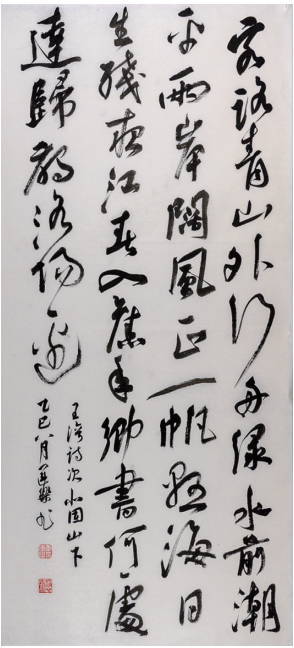 客路青山外行舟綠水前潮
平兩岸闊風正一帆懸海日
生殘夜江春入舊年鄉書何處
達歸雁洛陽邊
王灣詩次北固山下
乙巳八月